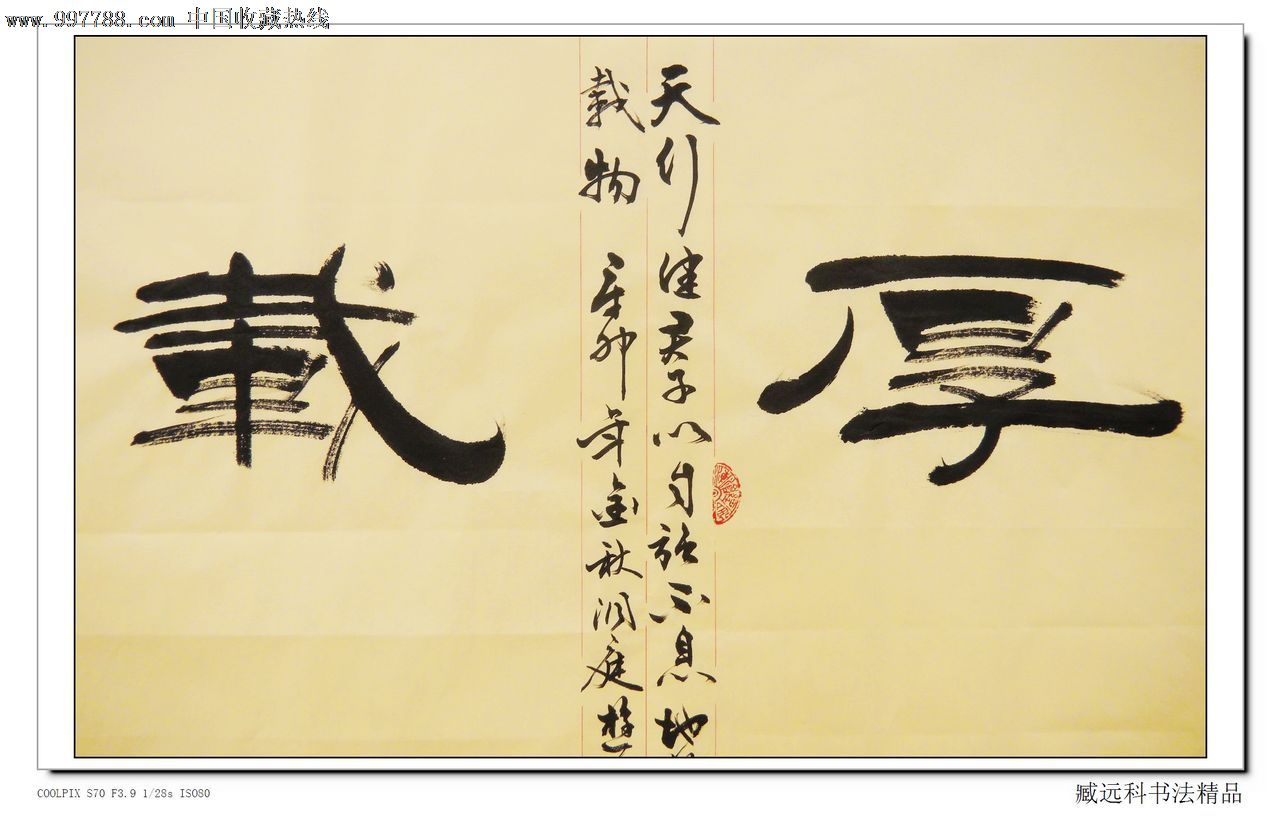 www.997788.com 中国收藏热线
厚
天行健君子以自强不息地
載物 辛卯年金秋洞庭
載
COOLPIX S70 F3.9 1/28s ISO80
臧远科书法精品